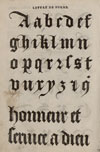 LETTRE DE FORME
A a b c d e f
g h i k l m n
o p q r ſ s t
v u x y z
honneur et
ſeruice a dieu